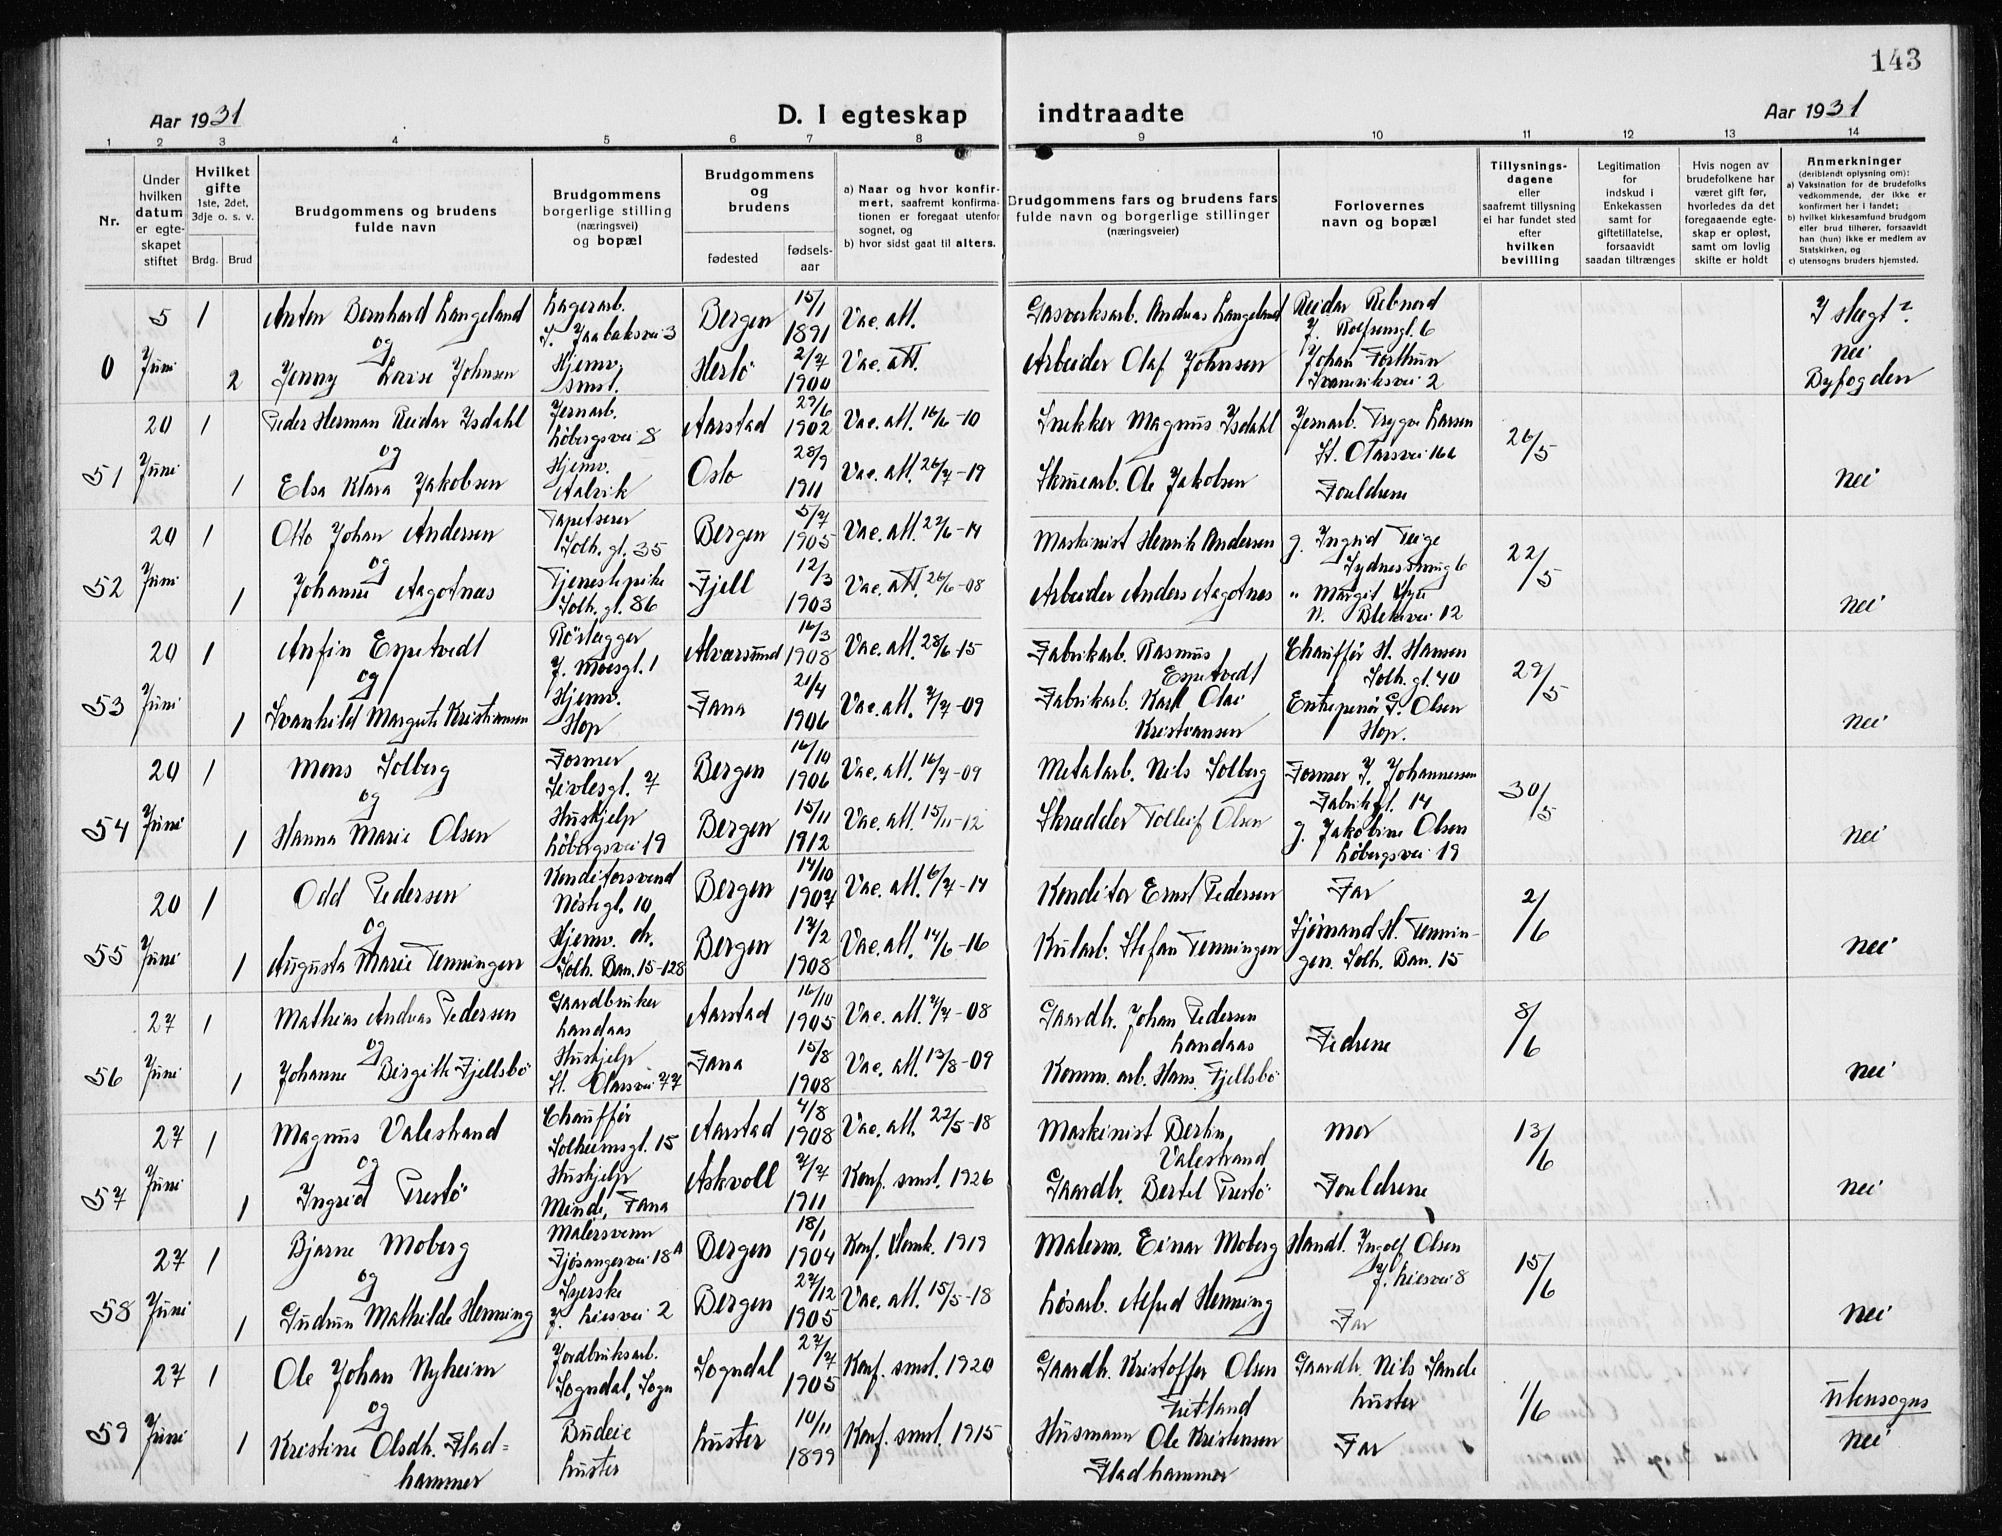 143
Aar 1931
D. I egteskap indtraadte
Aar 1931
1 2 3 4 5 6 7 8 9 10 11 12 13 14
Nr.
Under hvilken datum er egteskapet stiftet
Hvilket gifte 1ste, 2det, 3dje o. s. v.
Brdg. Brud
Brudgommens og brudens fulde navn
Brudgommens borgerlige stilling (næringsvei) og bopæl
Brudgommens og brudens
fødested
fødsels-aar
a) Naar og hvor konfirmert, saafremt konfirmationen er foregaat utenfor sognet, og
b) hvor sidst gaat til alters.
Brudgommens fars og brudens fars fulde navn og borgerlige stillinger (næringsveier)
Forlovernes navn og bopæl
Tillysningsdagene eller saafremt tillysning ei har fundet sted efter hvilken bevilling
Legitimation for indskud i Enkekassen samt for giftetillatelse, forsaavidt saadan tiltrænges
Hvis nogen av brudefolkene har været gift før, hvorledes da det foregaaende egteskap er opløst, samt om lovlig skifte er holdt
Anmerkninger (deriblandt oplysning om):
a) Vaksination for de brudefolks vedkommende, der ikke er konfirmert her i landet;
b) hvilket kirkesamfund brudgom eller brud tilhører, forsaavidt han (hun) ikke er medlem av Statskirken, og
c) utensogns bruders hjemsted.
5 1 Anton Bernhard Langeland Lagerarb. Bergen 15/1 1891 Vac. att. Gasverksarb. Andreas Langeland Reidar Rebnord I slegt?
0 Juni og
2 Jenny Lovise Johnsen Hjemv. smst. Herlö 2/7 1900 Vac. att. Arbeider Olaf Johnsen Johan Forthun nei Byfogden
20 1 Peder Herman Reidar Isdahl Jernarb. Løbergsvei 8 Aarstad 27/6 1902 Vac. att. 16/6-10 Snekker Magnus Isdahl Jernarb. Trygve Larsen St. Olavsvei 16a 26/5
51 Juni og
1 Elsa Klara Jakobsen Hjemv. Aalvik Oslo 28/9 1911 Vac. att. 26/7-19 Skruearb. Ole Jakobsen Foreldrene nei
20 1 Otto Johan Andersen Tapetserer Solh. gt. 35 Bergen 5/7 1905 Vac. att. 22/6-14 Maskinist Henrik Andersen g. Ingrid Teige 22/5
52 Juni og
1 Johanne Aagotnes Tjenestepike Solh. gt. 86 Fjell 12/3 1903 Vac. att. 26/6-08 Arbeider Anders Aagotnes " Margit N. Blekevei 12 nei
20 1 Anfin Espetvedt Rörlegger J. Moesgt. 1 Alversund 16/3 1908 Vac. att. 28/6-15 Fabrikarb. Rasmus Espetvedt Chauffør H. Hansen Solh. gt. 40 29/5
53 Juni og
1 Svanhild Margrete Kristiansen Hjemv. Hop Fana 21/4 1906 Vac. att. 7/7-09 Fabrikarb. Karl Olai Kristiansen Entrepenør G. Olsen Hop. nei
20 1 Mons Solberg Former Sivlesgt. 7 Bergen 16/10 1906 Vac. att. 16/7-09 Metalarb. Nils Solberg Former J. Johannessen Fabrikgt. 14 30/5
54 Juni og
1 Hanna Marie Olsen Huskjelp Løbergsvei 19 Bergen 15/11 1912 Vac. att. 15/11-12 Skredder Tolleif Olsen g. Jakobine Olsen Løbergsvei 19 nei
20 1 Odd Pedersen Konditorsvend Nöstegt. 10 Bergen 14/10 1907 Vac. att. 6/7-14 Konditor Ernst Pedersen Far 2/6
55 Juni og
1 Augusta Marie Tenningen Hjemv. Solh. Ban. 15-128 Bergen 12/2 1908 Vac. att. 14/6-16 Kularb. Stefan Tenningen Sjømand St. Tenningen. Solh. Ban. 15 nei
27 1 Mathias Andreas Pedersen Gaardbruker Landaas Aarstad 16/10 1905 Vac. att. 7/7-08 Gaardbr. Johan Pedersen Landaas Fedrene 8/6
56 Juni og
1 Johanne Birgitte Fjellsbö Huskjelp St. Olavsvei 77 Fana 15/8 1908 Vac. att. 13/8-09 Komm. arb. Hans Fjellsbö nei
27 1 Magnus Valestrand Chauffør Solheimsgt. 15 Aarstad 4/8 1908 Vac. att. 22/5-18 Maskinist Bertin Valestrand Mor 13/6
57 Juni og
1 Ingrid Prestö Huskjelp Minde, Fana Askvoll 7/7 1911 Konf. smst. 1926 Gaardbr. Bertel Prestö Foreldrene nei
27 1 Bjarne Moberg Malersvenn Fjösangervei 18A Bergen 18/1 1904 Konf. 1919 Malerm. Einar Moberg Handl. Ingolf Olsen J. Liesvei 8 15/6
58 Juni og
1 Gudrun Mathilde Henning Syerske J. Liesvei 2 Bergen 27/12 1905 Vac. att. 15/5-18 Løsarb. Alfred Henning Far nei
27 1 Ole Johan Nyheim Jordbruksarb. Sogndal, Sogn Sogndal 27/7 1905 Konf. smst. 1920 Gaardbr. Kristoffer Olsen Fretland Gaardbr. Nils Sande Luster 1/6 utensogns
59 Juni og
1 Kristine Olsdtr. Fladhammer Budeie Luster Luster 10/11 1899 Konf. smst. 1915 Husmann Ole Kristensen Fladhammer Far nei